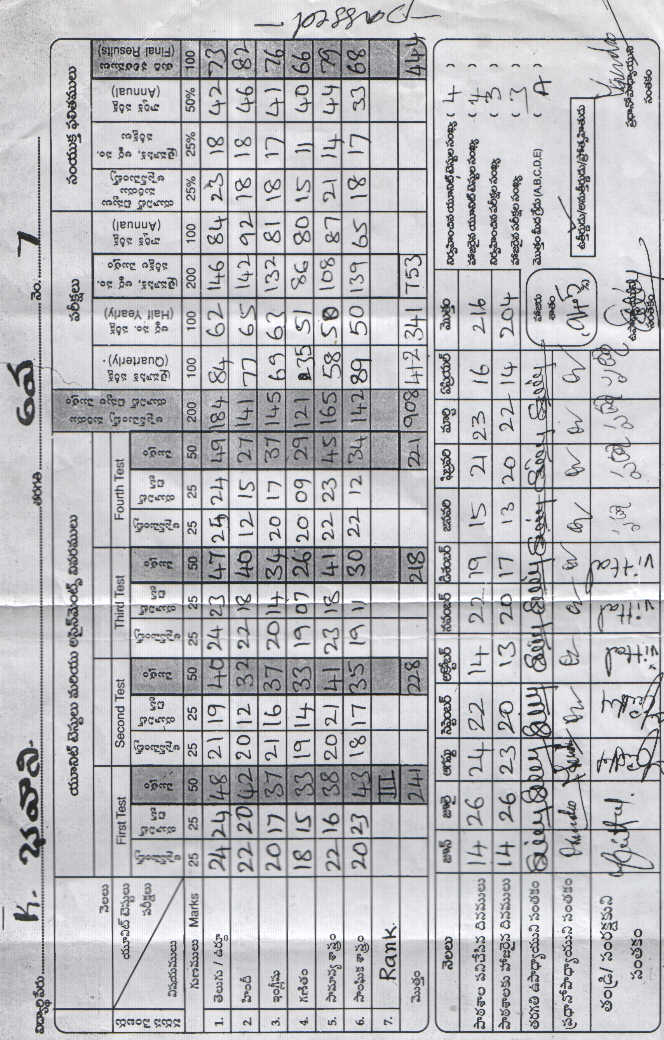 విద్యార్థి పేరు K. భవాని తరగతి 6వ నెం. 7
యూనిట్ టెస్టులు మరియు అసైన్‌మెంట్స్ వివరములు పరీక్షలు సంయుక్త ఫలితములు
నెలలు First Test Second Test Third Test Fourth Test
యూనిట్ టెస్టులు పరీక్షలు (Quarterly) (Half Yearly) (Annual) (Annual) (Final Results)
విషయములు
గుణములు Marks 25 25 50 25 25 50 25 25 50 25 25 50 200 100 100 200 100 25% 25% 50% 100
1. తెలుగు / ఉర్దూ 24 24 48 21 19 40 24 23 47 25 24 49 184 84 62 146 84 23 18 42 73
2. హిందీ 22 20 42 20 12 32 22 18 40 12 15 27 141 77 65 142 92 18 18 46 82
3. ఇంగ్లీషు 20 17 37 21 16 37 20 14 34 20 17 37 145 69 63 132 81 18 17 41 76
4. గణితం 18 15 33 19 14 33 19 07 26 20 09 29 121 35 51 86 80 15 11 40 66
5. సామాన్య శాస్త్రం 22 16 38 20 21 41 23 18 41 22 23 45 165 58 50 108 87 21 14 44 79
6. సాంఘిక శాస్త్రం 20 23 43 18 17 35 19 11 30 22 12 34 142 89 50 139 65 18 17 33 68
7. Rank. III
మొత్తం 241 228 218 221 908 412 341 753 444
passed
నెలలు జూన్ జూలై ఆగస్టు సెప్టెంబర్ అక్టోబర్ నవంబర్ డిసెంబర్ జనవరి ఫిబ్రవరి మార్చి ఏప్రియల్ మొత్తం
పాఠశాల పనిచేసిన దినములు 14 26 24 22 14 22 19 15 21 23 16 216
పాఠశాలకు హాజరైన దినములు 14 26 23 20 13 20 17 13 20 22 14 204
తరగతి ఉపాధ్యాయుని సంతకం
ప్రధానోపాధ్యాయుని సంతకం
తండ్రి/ సంరక్షకుని సంతకం vittal vittal vittal
హాజరు శాతం
నిర్వహించిన యూనిట్ టెస్టుల సంఖ్య ( 4 )
హాజరైన యూనిట్ టెస్టుల సంఖ్య ( 4 )
నిర్వహించిన పరీక్షల సంఖ్య ( 3 )
హాజరైన పరీక్షల సంఖ్య ( 3 )
మొత్తం మీద గ్రేడు (A,B,C,D,E) ( A )
ఉపాధ్యాయుని సంతకం
ప్రధానోపాధ్యాయుని సంతకం